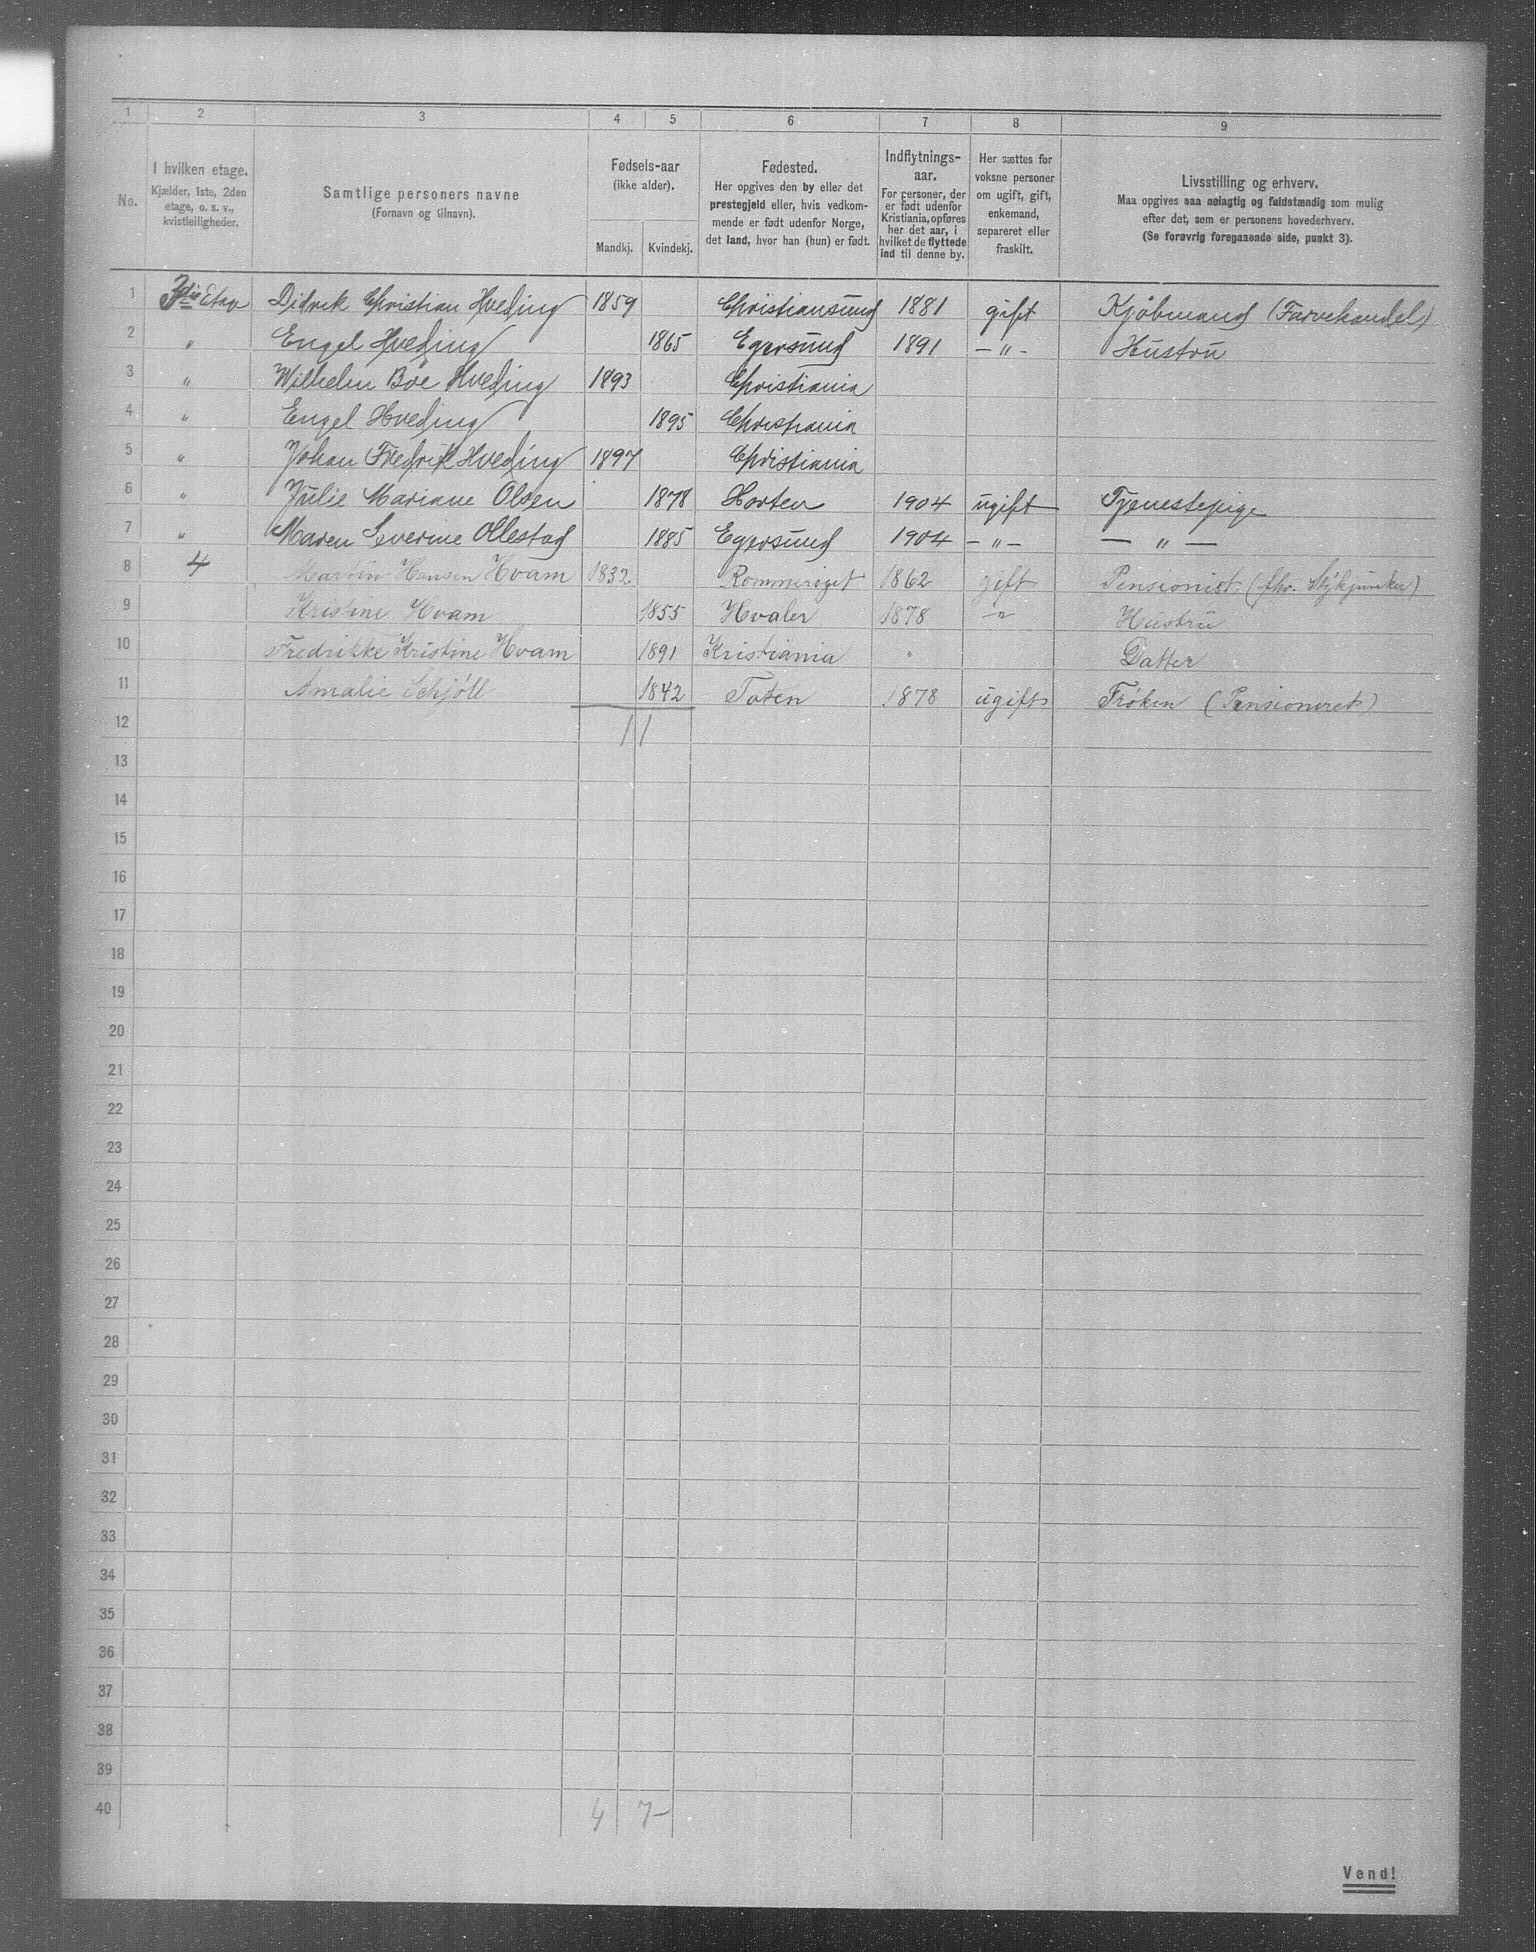 1 2 3 4 5 6 7 8 9
No.
I hvilken etage.
Kjælder, 1ste, 2den
etage, o. s. v.,
kvistleiligheder.
Samtlige personers navne
(Fornavn og tilnavn).
Fødsels-aar
(ikke alder).
Mandkj. Kvindekj.
Fødested.
Her opgives den by eller det
prestegjeld eller, hvis vedkom-
mende er født udenfor Norge,
det land, hvor han (hun) er født.
Indflytnings-
aar.
For personer, der
er født udenfor
Kristiania, opføres
her det aar, i
hvilket de flyttede
ind til denne by.
Her sættes for
voksne personer
om ugift, gift,
enkemand,
separeret eller
fraskilt.
Livsstilling og erhverv.
Maa opgives saa nøiagtig og fuldstændig som mulig
efter det, som er personens hovederhverv.
(Se forøvrig foregaaende side, punkt 3).
1 3die Etage Didrik Christian Hveding 1859 Christiansund 1881 gift Kjøbmand (Farvehandel)
2 " Engel Hveding 1865 Egersund 1891 — " — Hustru
3 " Wilhelm Böe Hveding 1893 Christiania
4 " Engel Hveding 1895 Christiania
5 " Johan Fredrik Hveding 1897 Christiania
6 " Julie Mariane Olsen 1878 Horten 1904 ugift Tjenestepige
7 " Maren Severine Ollestad 1885 Egersund 1904 — " — — " —
8 4 Martin Hansen Hvam 1832 Rommeriget 1862 gift Pensionist (fhv. Stykjunker)
9 Kristine Hvam 1855 Hvaler 1878 " Hustru
10 Fredrikke Kristine Hvam 1891 Kristiania " Datter
11 Amalie Schjøll 1842 Toten 1878 ugift Frøken (Pensioneret)
12 11
13
14
15
16
17
18
19
20
21
22
23
24
25
26
27
28
29
30
31
32
33
34
35
36
37
38
39
40 4 7 —
Vend!